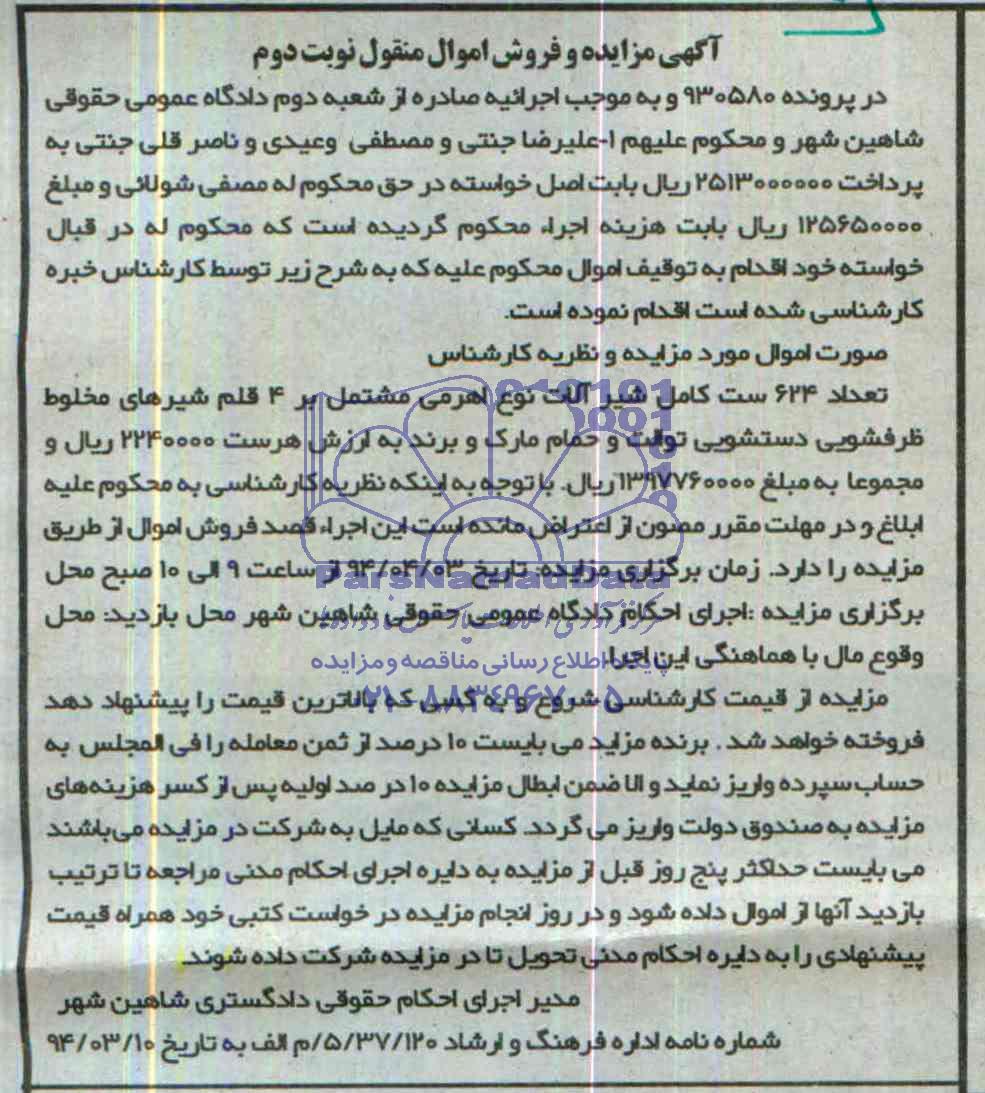 آگهی مزایده و فروش اموال منقول نوبت دوم
در پرونده ۹۳۰۵۸۰ و به موجب اجرائیه صادره از شعبه دوم دادگاه عمومی حقوقی
شاهین شهر و محکوم علیهم ۱-علیرضا جنتی و مصطفی وعیدی و ناصر قلی جنتی به
پرداخت ۲۵۱۳۰۰۰۰۰۰ ریال بابت اصل خواسته در حق محکوم له مصفی شولائی و مبلغ
۱۲۵۶۵۰۰۰۰ ریال بابت هزینه اجراء محکوم گردیده است که محکوم له در قبال
خواسته خود اقدام به توقیف اموال محکوم علیه که به شرح زیر توسط کارشناس خبره
کارشناسی شده است اقدام نموده است.
صورت اموال مورد مزایده و نظریه کارشناس
تعداد ۶۲۴ ست کامل شیر آلات نوع اهرمی مشتمل بر ۴ قلم شیرهای مخلوط
ظرفشویی دستشویی توالت و حمام مارک و برند به ارزش هرست ۲۲۴۰۰۰۰ ریال و
مجموعا به مبلغ ۱۳۹۷۷۶۰۰۰۰ ریال. با توجه به اینکه نظریه کارشناسی به محکوم علیه
ابلاغ و در مهلت مقرر مصون از اعتراض مانده است این اجراء قصد فروش اموال از طریق
مزایده را دارد. زمان برگزاری مزایده: تاریخ ۹۴/۰۴/۰۳ از ساعت ۹ الی ۱۰ صبح محل
برگزاری مزایده :اجرای احکام دادگاه عمومی حقوقی شاهین شهر محل بازدید: محل
وقوع مال با هماهنگی این اجرا.
مزایده از قیمت کارشناسی شروع و به کسی که بالاترین قیمت را پیشنهاد دهد
فروخته خواهد شد . برنده مزاید می بایست ۱۰ درصد از ثمن معامله را فی المجلس به
حساب سپرده واریز نماید و الا ضمن ابطال مزایده ۱۰ در صد اولیه پس از کسر هزینه‌های
مزایده به صندوق دولت واریز می گردد. کسانی که مایل به شرکت در مزایده می‌باشند
می بایست حداکثر پنج روز قبل از مزایده به دایره اجرای احکام مدنی مراجعه تا ترتیب
بازدید آنها از اموال داده شود و در روز انجام مزایده در خواست کتبی خود همراه قیمت
پیشنهادی را به دایره احکام مدنی تحویل تا در مزایده شرکت داده شوند.
مدیر اجرای احکام حقوقی دادگستری شاهین شهر
شماره نامه اداره فرهنگ و ارشاد ۵/۳۷/۱۲۰/م الف به تاریخ ۹۴/۰۳/۱۰
ParsNamadData
پایگاه اطلاع رسانی مناقصه و مزایده
۰۲۱-۸۸۳۴۹۶۷۰-۵